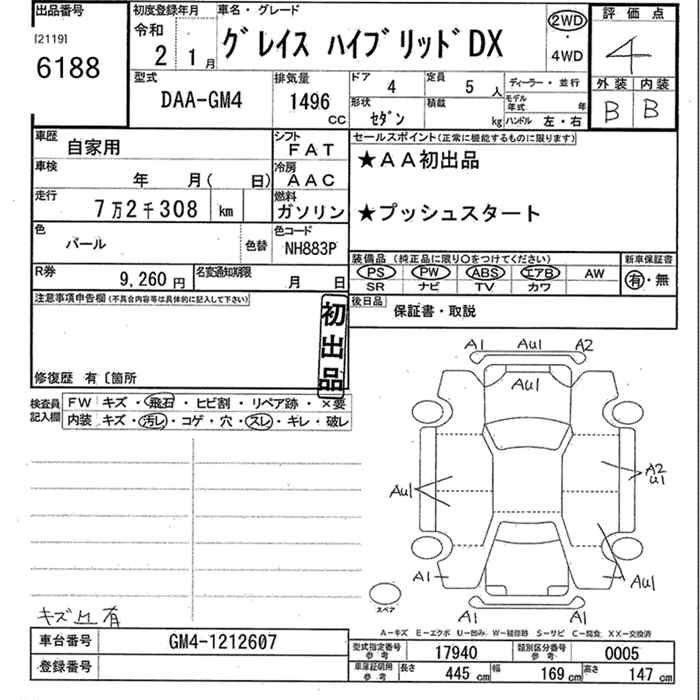 出品番号
[2119]
6188
初度登録年月
令和
2 1 月
車名・グレード
グレイス ハイブリッドDX
2WD
・
4WD
評価点
4
外装 内装
B B
型式
DAA-GM4
排気量
1496 CC
ドア 4
定員 5 人
ディーラー・並行
形状 セダン
積載 kg
モデル年式 年
ハンドル 左・右
車歴 自家用
シフト FAT
車検 年 月( 日)
冷房 AAC
走行 7万2千308 km
燃料 ガソリン
色 パール
色替
色コード NH883P
R券 9,260 円
名変通知期限 月 日
セールスポイント(正常に機能するものに限ります)
★AA初出品
★プッシュスタート
装備品(純正品に限り○をつけてください)
PS PW ABS エアB AW
SR ナビ TV カワ
新車保証書
有・無
後日品 保証書・取説
注意事項申告欄(不具合内容等は具体的に記入して下さい)
初出品
修復歴 有〔箇所
検査員記入欄
FW キズ・飛石・ヒビ割・リペア跡・×要
内装 キズ・汚レ・コゲ・穴・スレ・キレ・破レ
A1 AU1 A2
AU1
AU1
A2
U1
A1
AU1
A1 A1
スペア
キズ凹有
A－キズ E－エクボ U－凹み W－補修跡 S－サビ C－腐食 XX－交換済
車台番号 GM4-1212607
登録番号
型式指定番号 参考 17940
類別区分番号 参考 0005
車庫証明用 参考 長さ 445 cm 幅 169 cm 高さ 147 cm